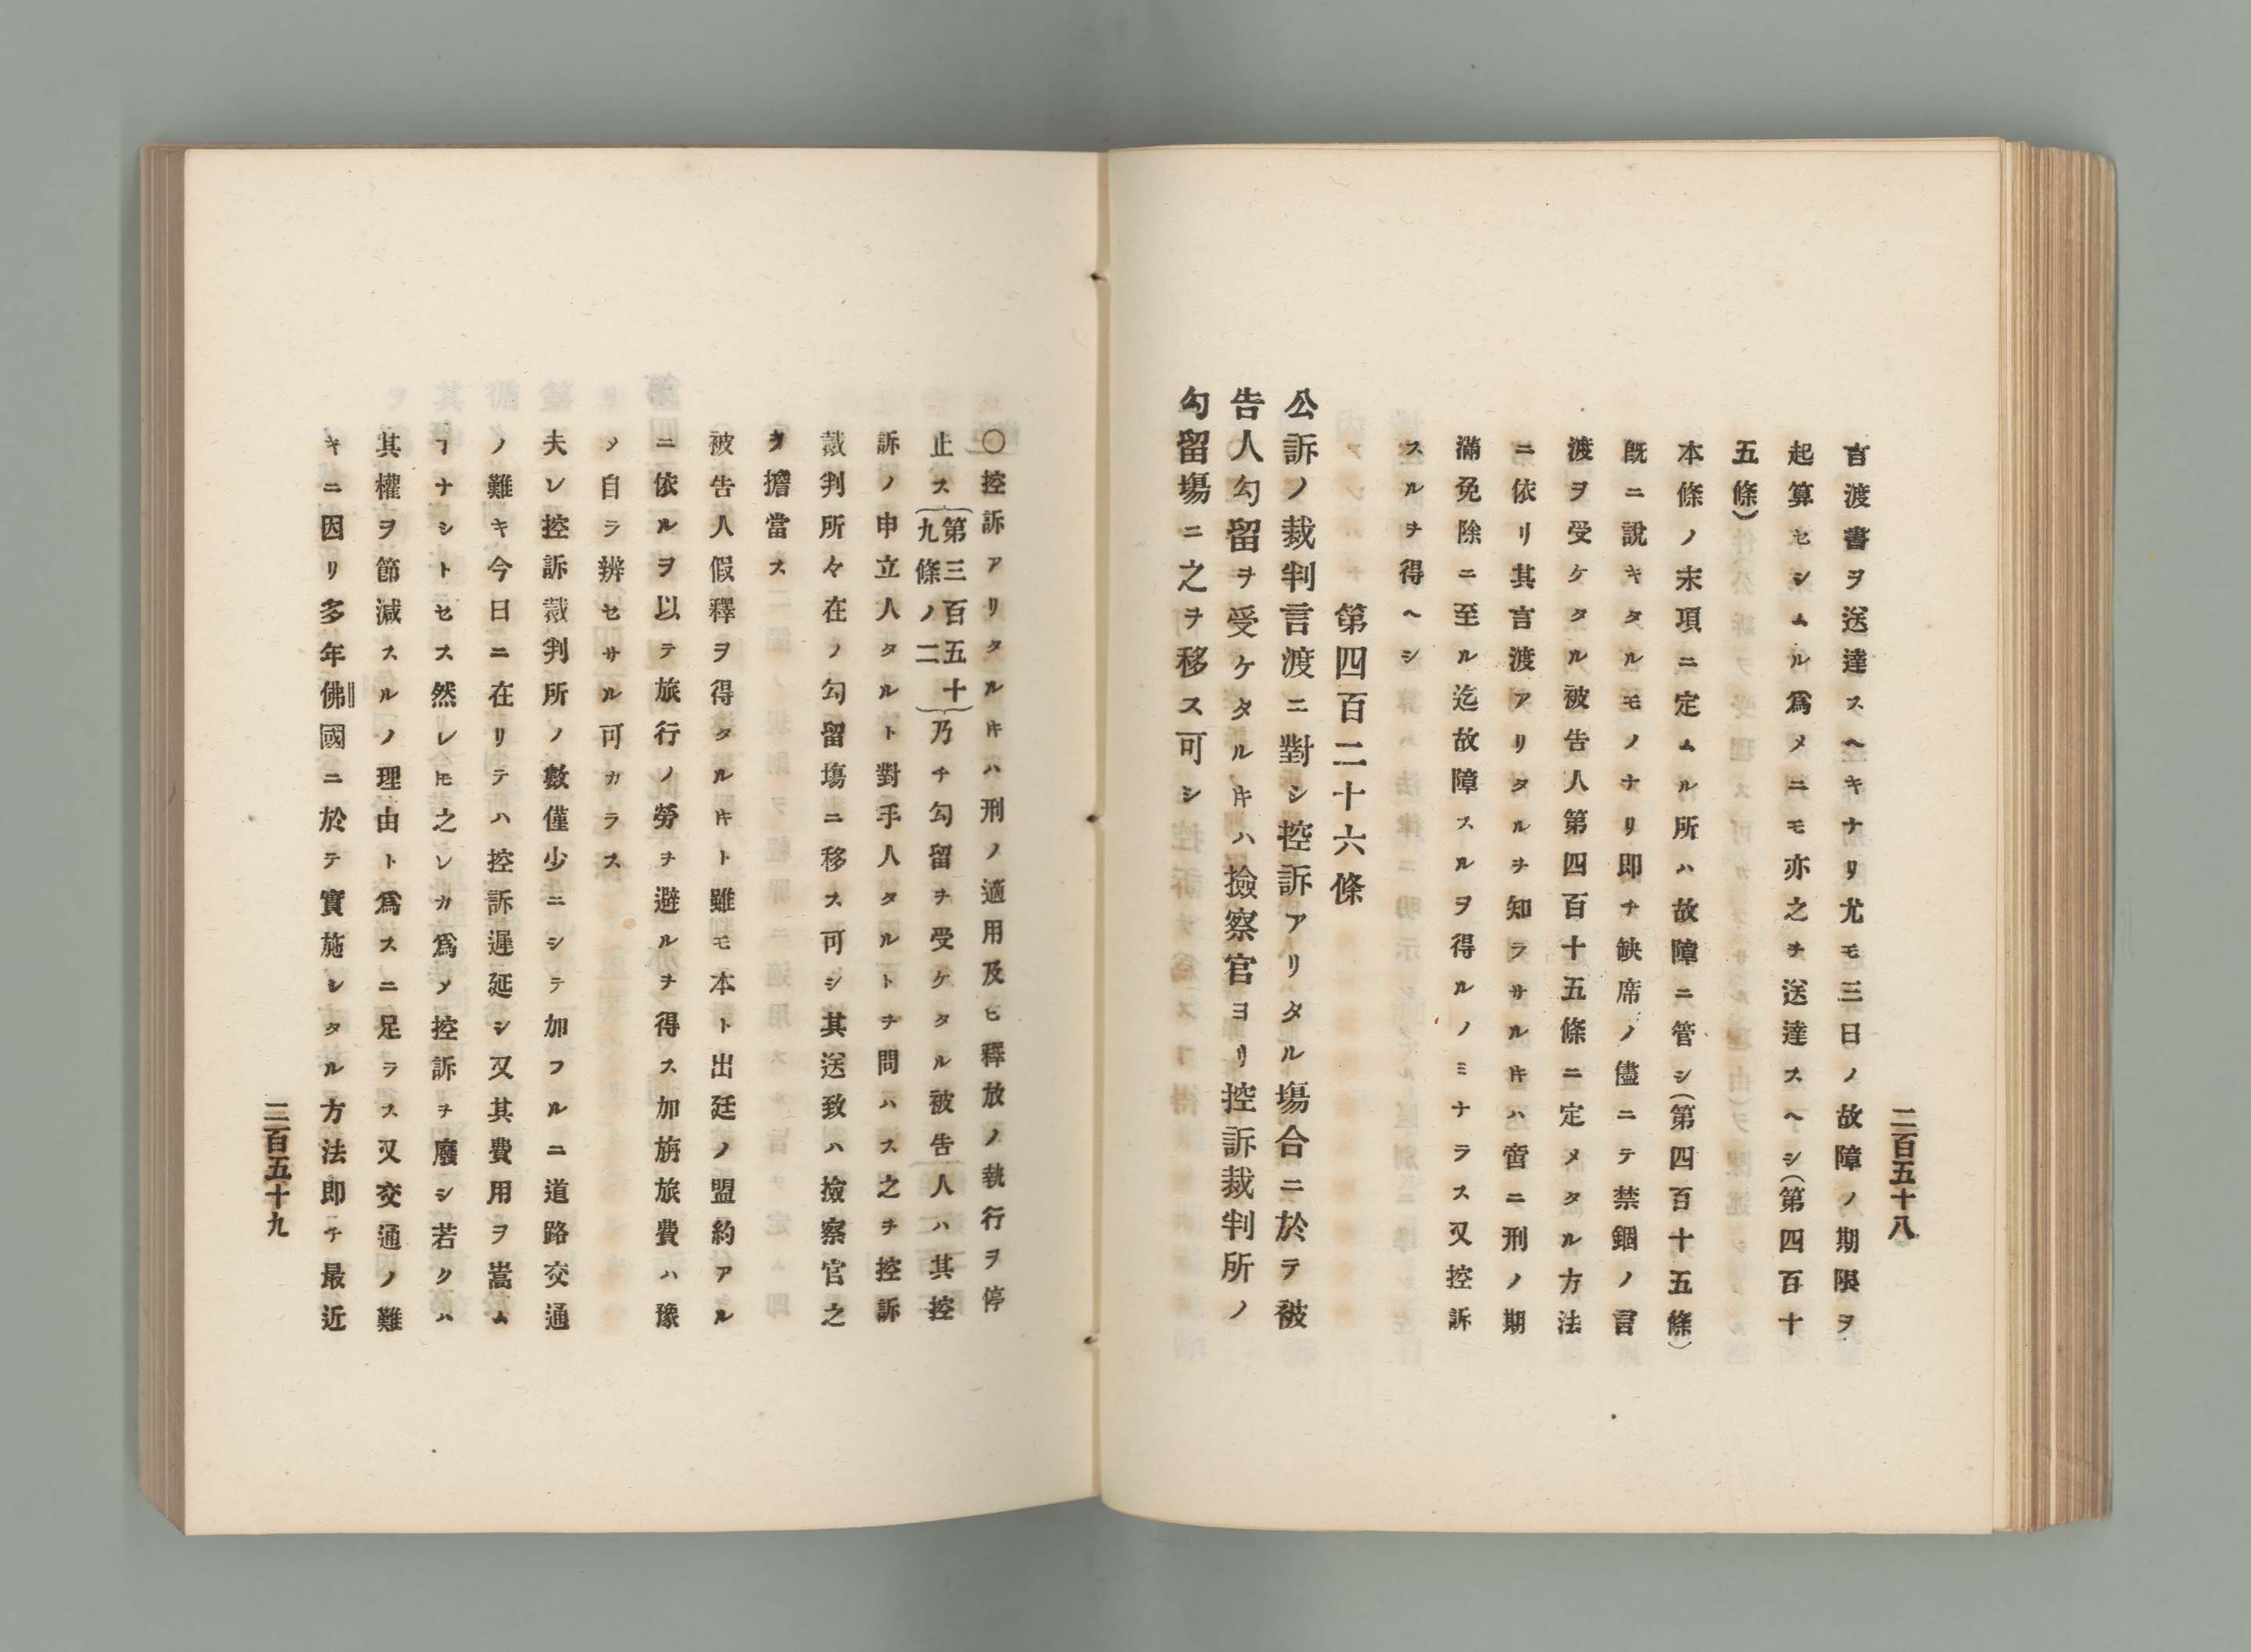 二百五十八
言渡書ヲ送達スヘキナリ尤モ三日ノ故障ノ期限ヲ
起算セシムル爲メニモ亦之ヲ送達スヘシ(第四百十
五條)
本條ノ末項ニ定ムル所ハ故障ニ管シ(第四百十五條)
既ニ說キタルモノナリ即チ缺席ノ儘ニテ禁錮ノ言
渡ヲ受ケタル被告人第四百十五條ニ定メタル方法
ニ依リ其言渡アリタルヲ知ラサルキハ啻ニ刑ノ期
滿免除ニ至ル迄故障スルヲ得ルノミナラス又控訴
スルヲ得ヘシ
第四百二十六條
公訴ノ裁判言渡ニ對シ控訴アリタル塲合ニ於テ被
告人勾留ヲ受ケタル𪜈ハ撿察官ヨリ控訴裁判所ノ
勾留塲ニ之ヲ移ス可シ
〇控訴アリタル𪜈ハ刑ノ適用及ヒ釋放ノ執行ヲ停
止ス(第三百五十九條ノ二)乃チ勾留ヲ受ケタル被告人ハ其控
訴ノ申立人タルト對手人タルトヲ問ハス之ヲ控訴
裁判所々在ノ勾留塲ニ移ス可シ其送致ハ撿察官之
ヲ擔當ス
被告人假釋ヲ得タル𪜈ト雖モ本ト出廷ノ盟約アル
ニ依ルヲ以テ旅行ノ勞ヲ避ルヲ得ス加旃旅費ハ豫
メ自ラ辨セサル可カラス
夫レ控訴裁判所ノ數僅少ニシテ加フルニ道路交通
ノ難キ今日ニ在リテハ控訴遲延シ又其費用ヲ嵩ム
ヿナシトセス然レ𪜈之レカ爲メ控訴ヲ廢シ若クハ
其權ヲ節減スルノ理由ト爲スニ足ラス又交通ノ難
キニ因リ多年佛國ニ於テ實施シタル方法即チ最近
二百五十九